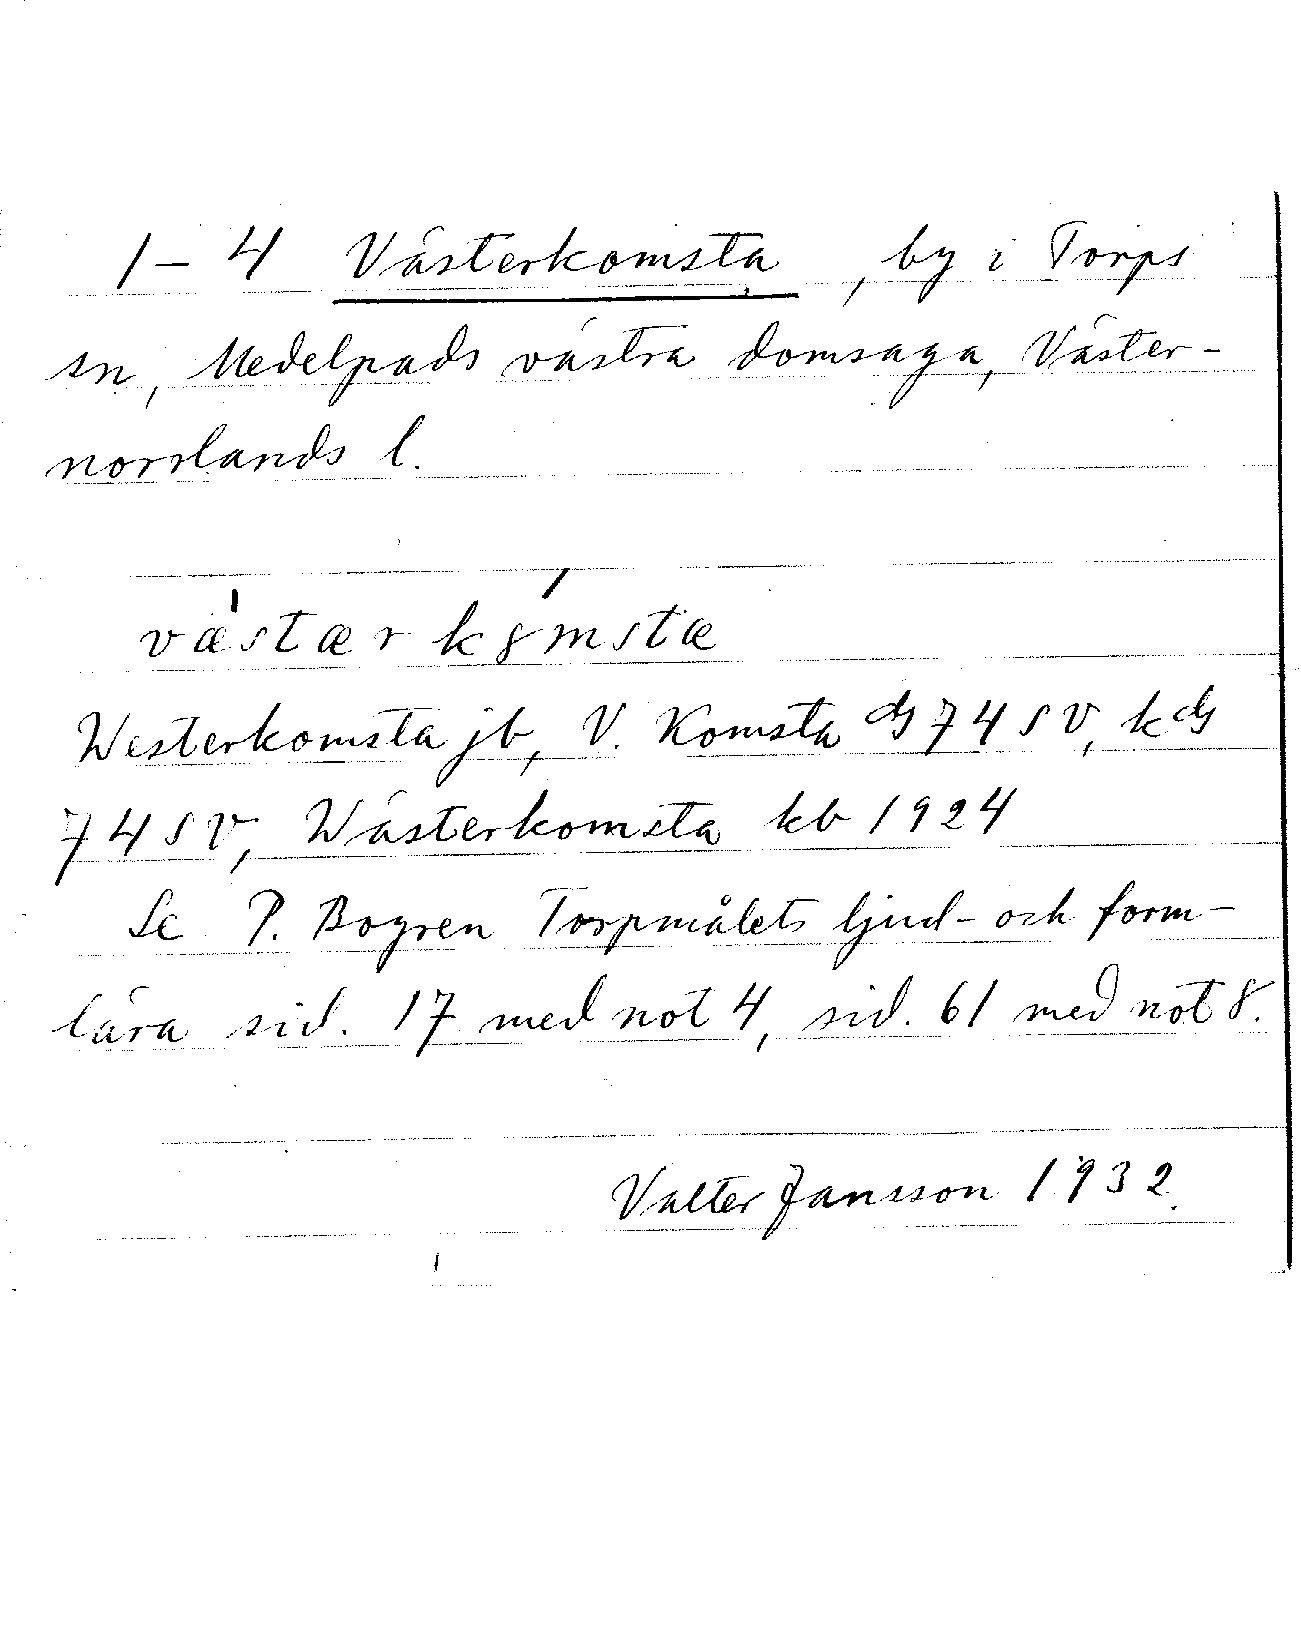 1–4 Västerkomsta, by i Torps
sn, Medelpads västra domsaga, Väster-
norrlands l.
væ̍stær kȣ́mstæ
Westerkomsta jb, V. Komsta dg 74 SV, kdg
74 SV, Wästerkomsta kb 1924
Se P. Bogren Torpmålets ljud- och form-
lära sid. 17 med not 4, sid. 61 med not 8.
Valter Jansson 1932.